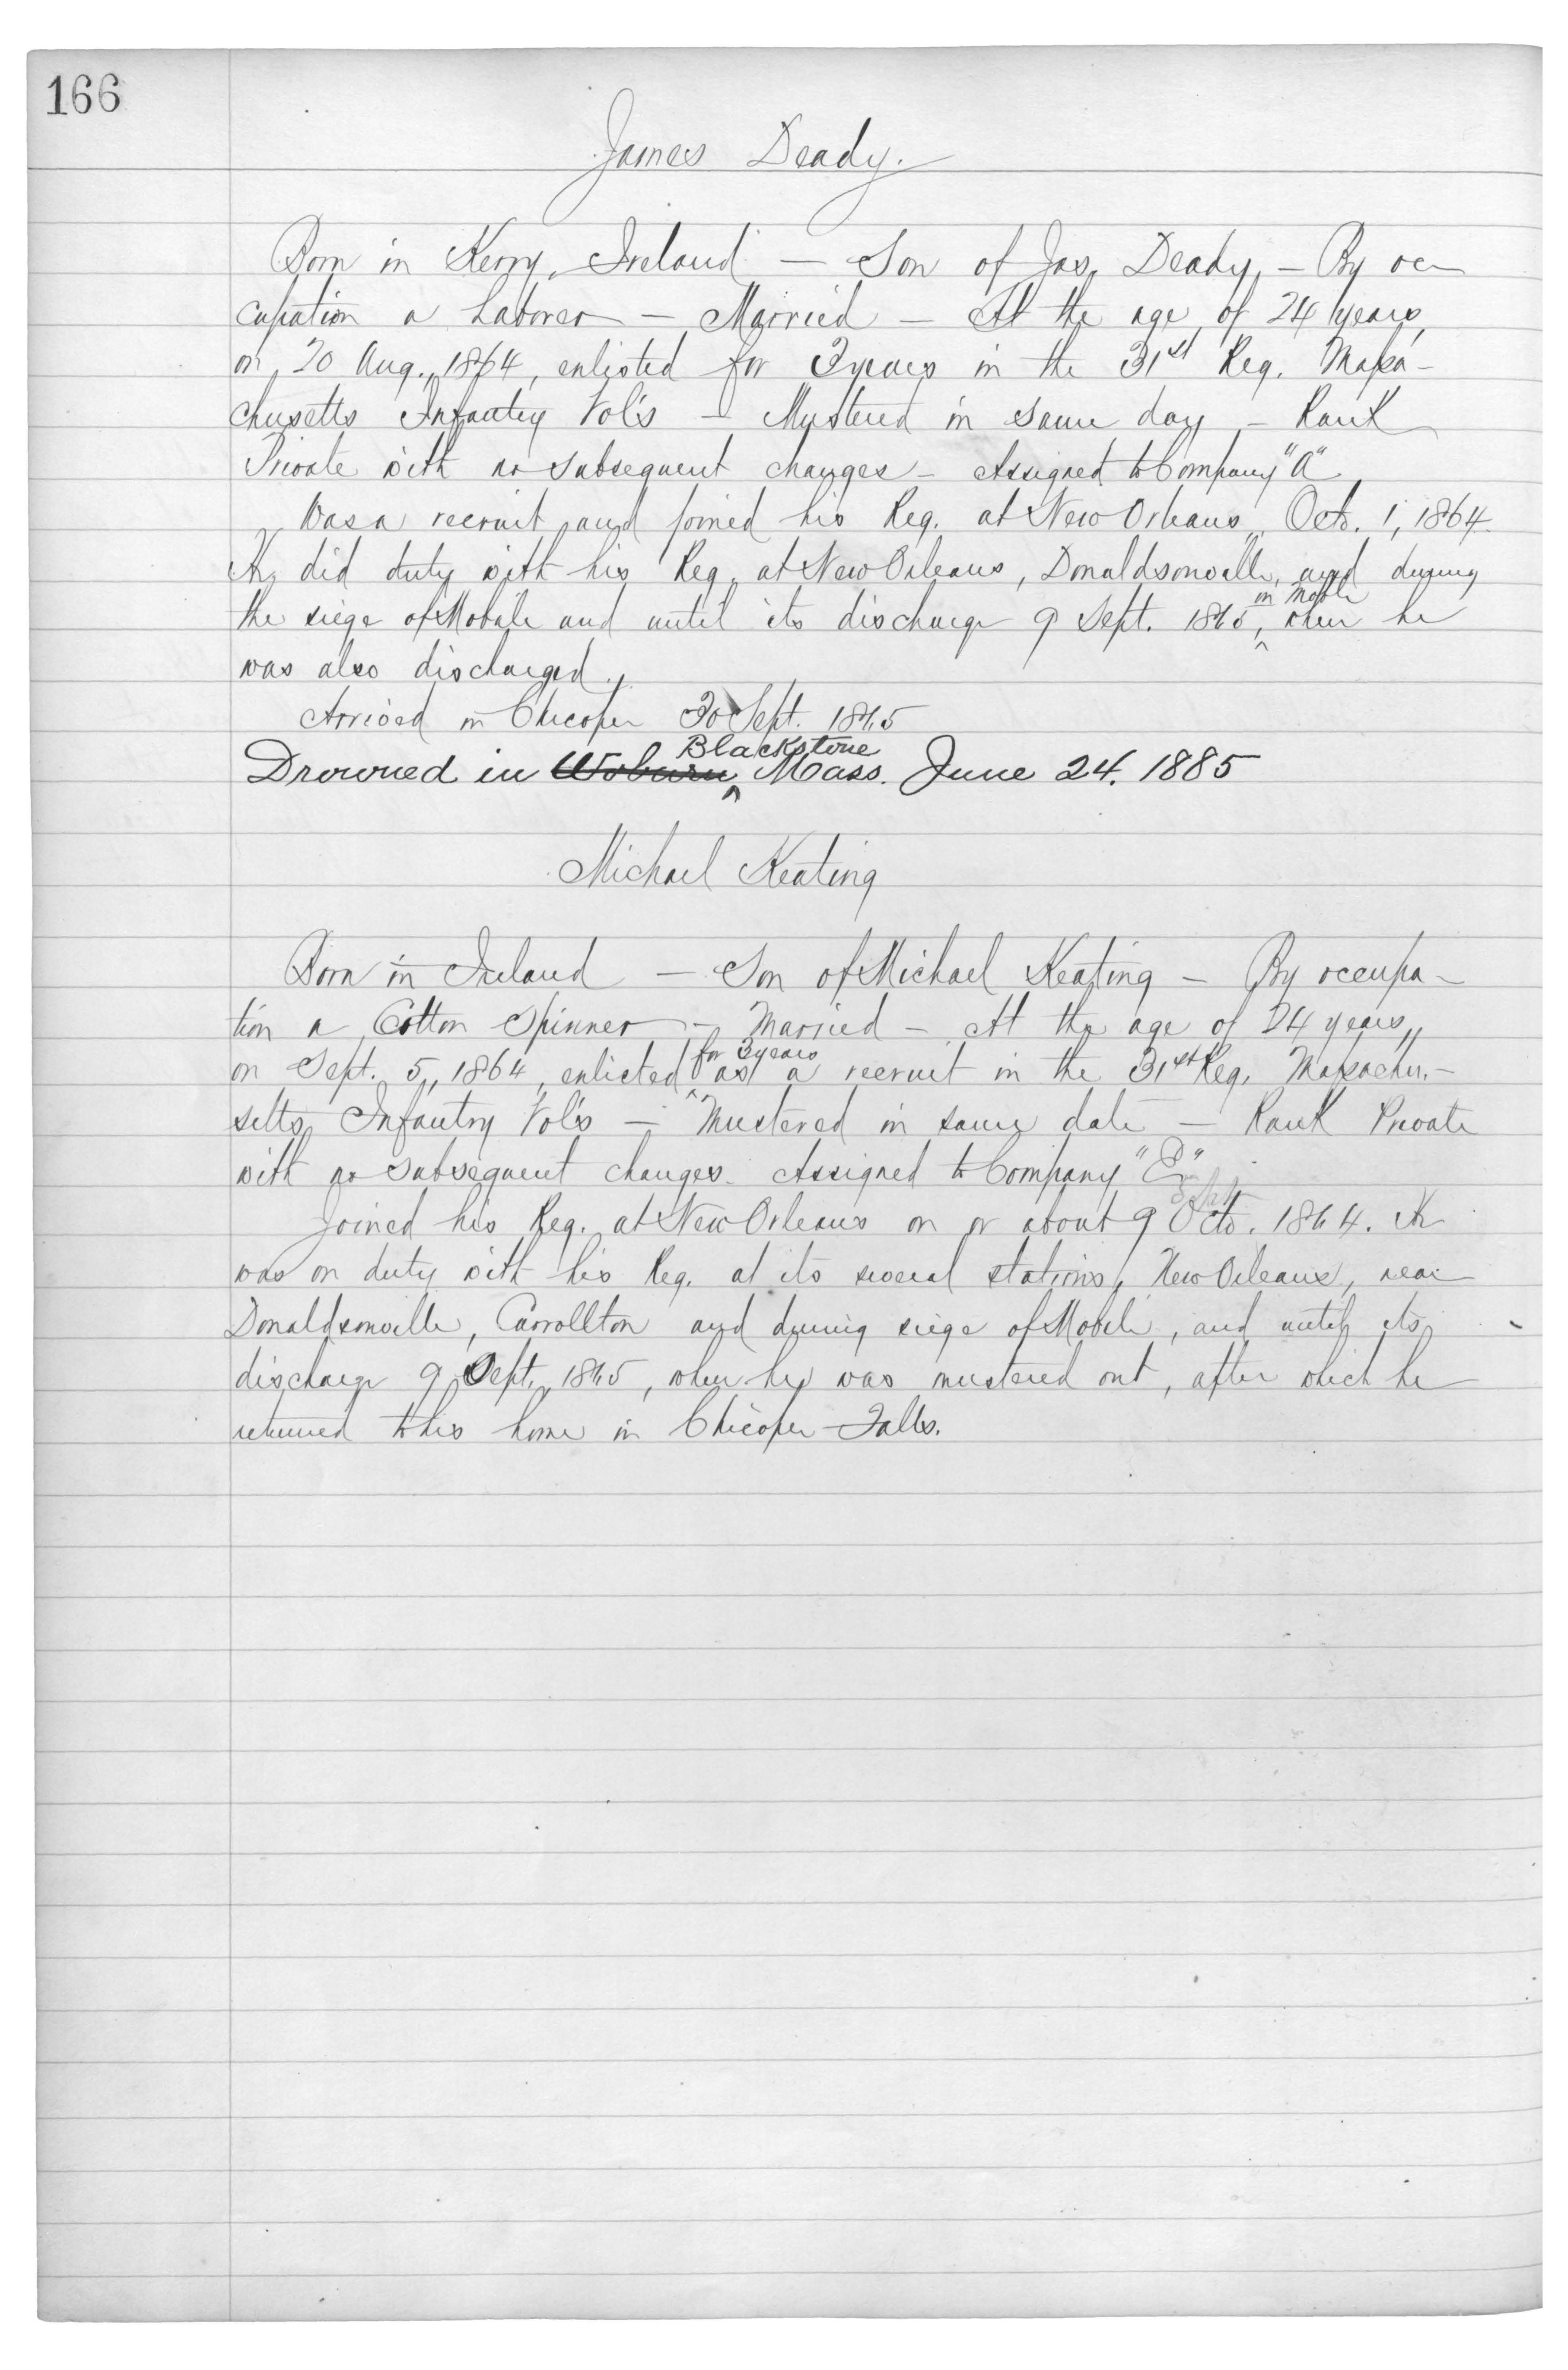 166
James Deady.
Born in Kerry, Ireland — Son of Jas. Deady, — By oc-
cupation a Laborer — Married — At the age of 24 years,
on 20 Aug., 1864, enlisted for 3 years in the 31st Reg. Massa-
chusetts Infantry Vol's — Mustered in same day — Rank
Private with no subsequent changes — Assigned to Company "A"
Was a recruit and joined his Reg. at New Orleans, Octo. 1, 1864.
He did duty with his Reg. at New Orleans, Donaldsonville, and during
in Mobile
the siege of Mobile and until its discharge 9 Sept. 1865, ^ when he
was also discharged.
Arrived in Chicopee 30 Sept. 1865
Blackstone
Drowned in Woburn ^ Mass. June 24. 1885
Michael Keating
Born in Ireland — Son of Michael Keating — By occupa-
tion a Cotton Spinner — Married — At the age of 24 years,
for 3 years
on Sept. 5, 1864, enlisted ^ as a recruit in the 31st Reg. Massachu-
setts Infantry Vol's — Mustered in same date — Rank Private
with no subsequent changes. Assigned to Company "E"
Joined his Reg. at New Orleans on or about 9 Octo. 1864. He
was on duty with his Reg. at its several stations, New Orleans, near
Donaldsonville, Carrollton and during siege of Mobile, and until its
discharge 9 Sept., 1865, when he was mustered out, after which he
returned to his home in Chicopee Falls.